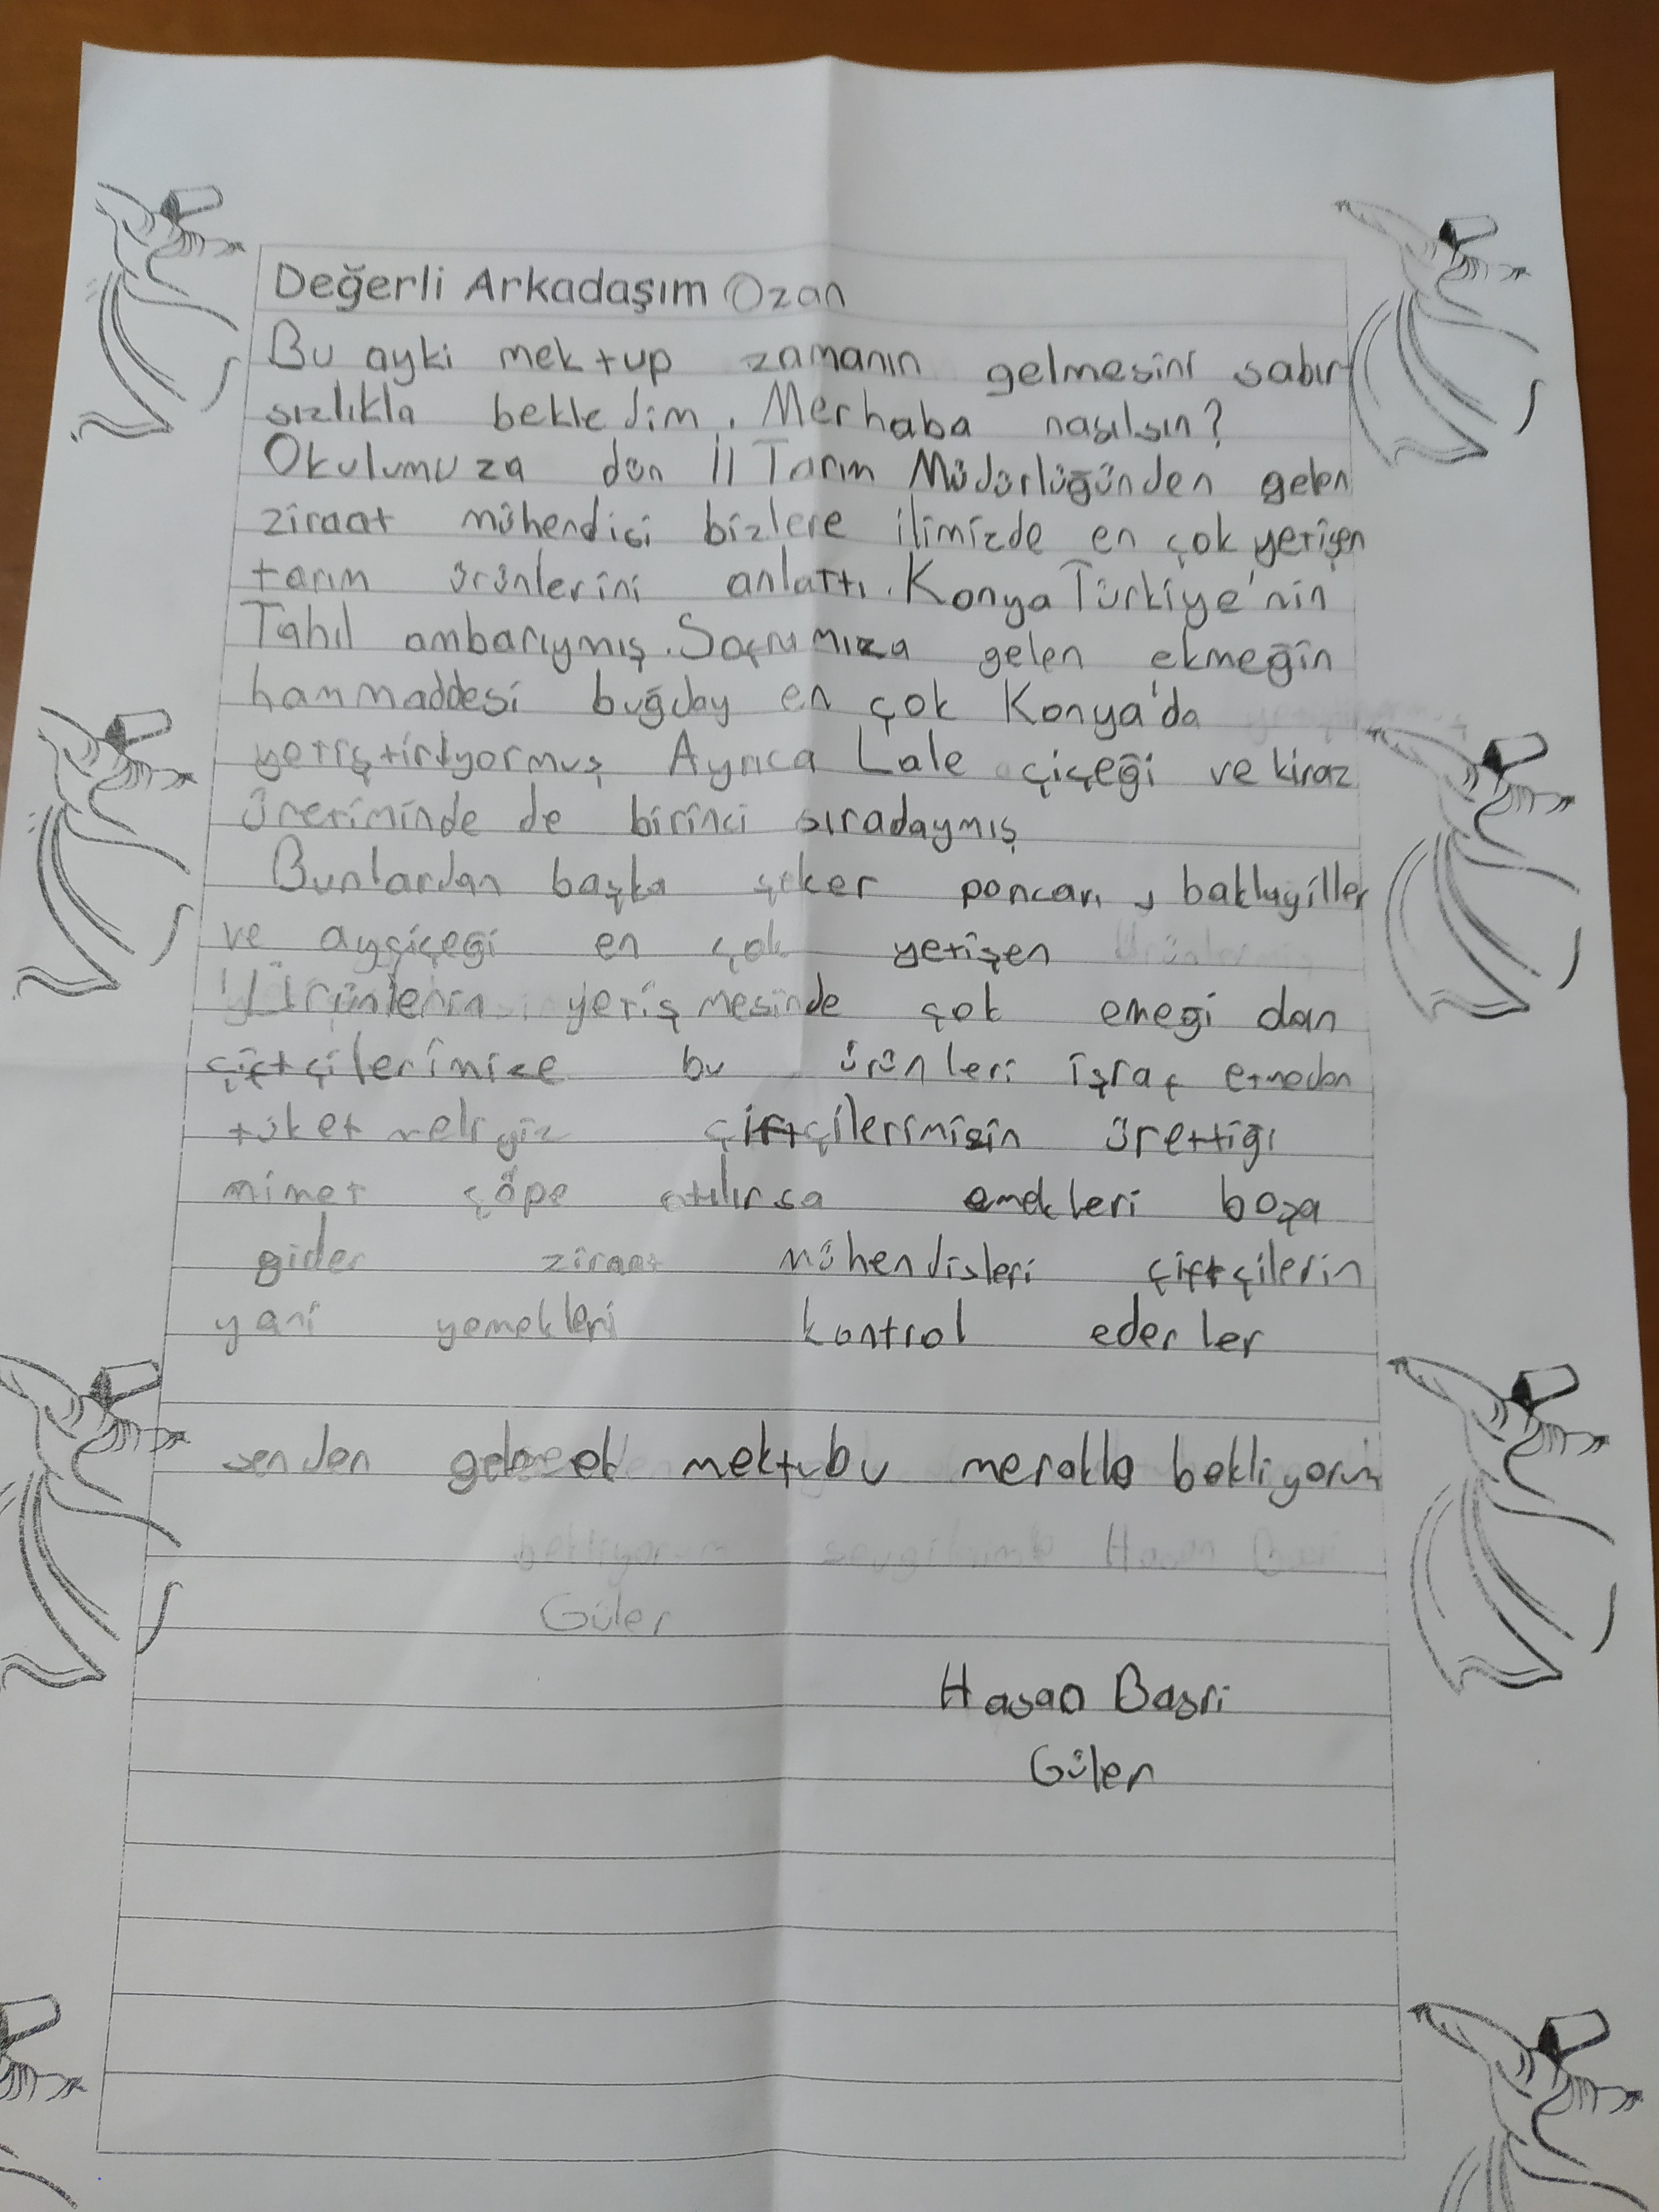 Değerli Arkadaşım Ozan
Bu ayki mektup zamanın gelmesini sabır
sızlıkla bekledim. Merhaba nasılsın?
Okulumuza dün İl Tarım Müdürlüğünden gelen
ziraat mühendisi bizlere ilimizde en çok yetişen
tarım ürünlerini anlattı. Konya Türkiye'nin
Tahıl ambarıymış. Soframıza gelen ekmeğin
hammaddesi buğday en çok Konya'da
yetiştiriyormuş Ayrıca Lale çiçeği ve kiraz
üretiminde de birinci sıradaymış
Bunlardan başka şeker poncarı, baklagiller
ve ayçiçeği en çok yetişen
Ürünlerin yetişmesinde çok emeği olan
çiftçilerimize bu ürünleri işraf etmeden
tüketmeliyiz çiftçilerimizin ürettiği
nimet çöpe atılırsa emekleri boşa
gider ziraat mühendisleri çiftçilerin
yani yemekleri kontrol ederler
senden gelecek mektubu merakla bekliyorum
bekliyorum sevgi Hasan Basri
Güler
Hasan Basri
Güler